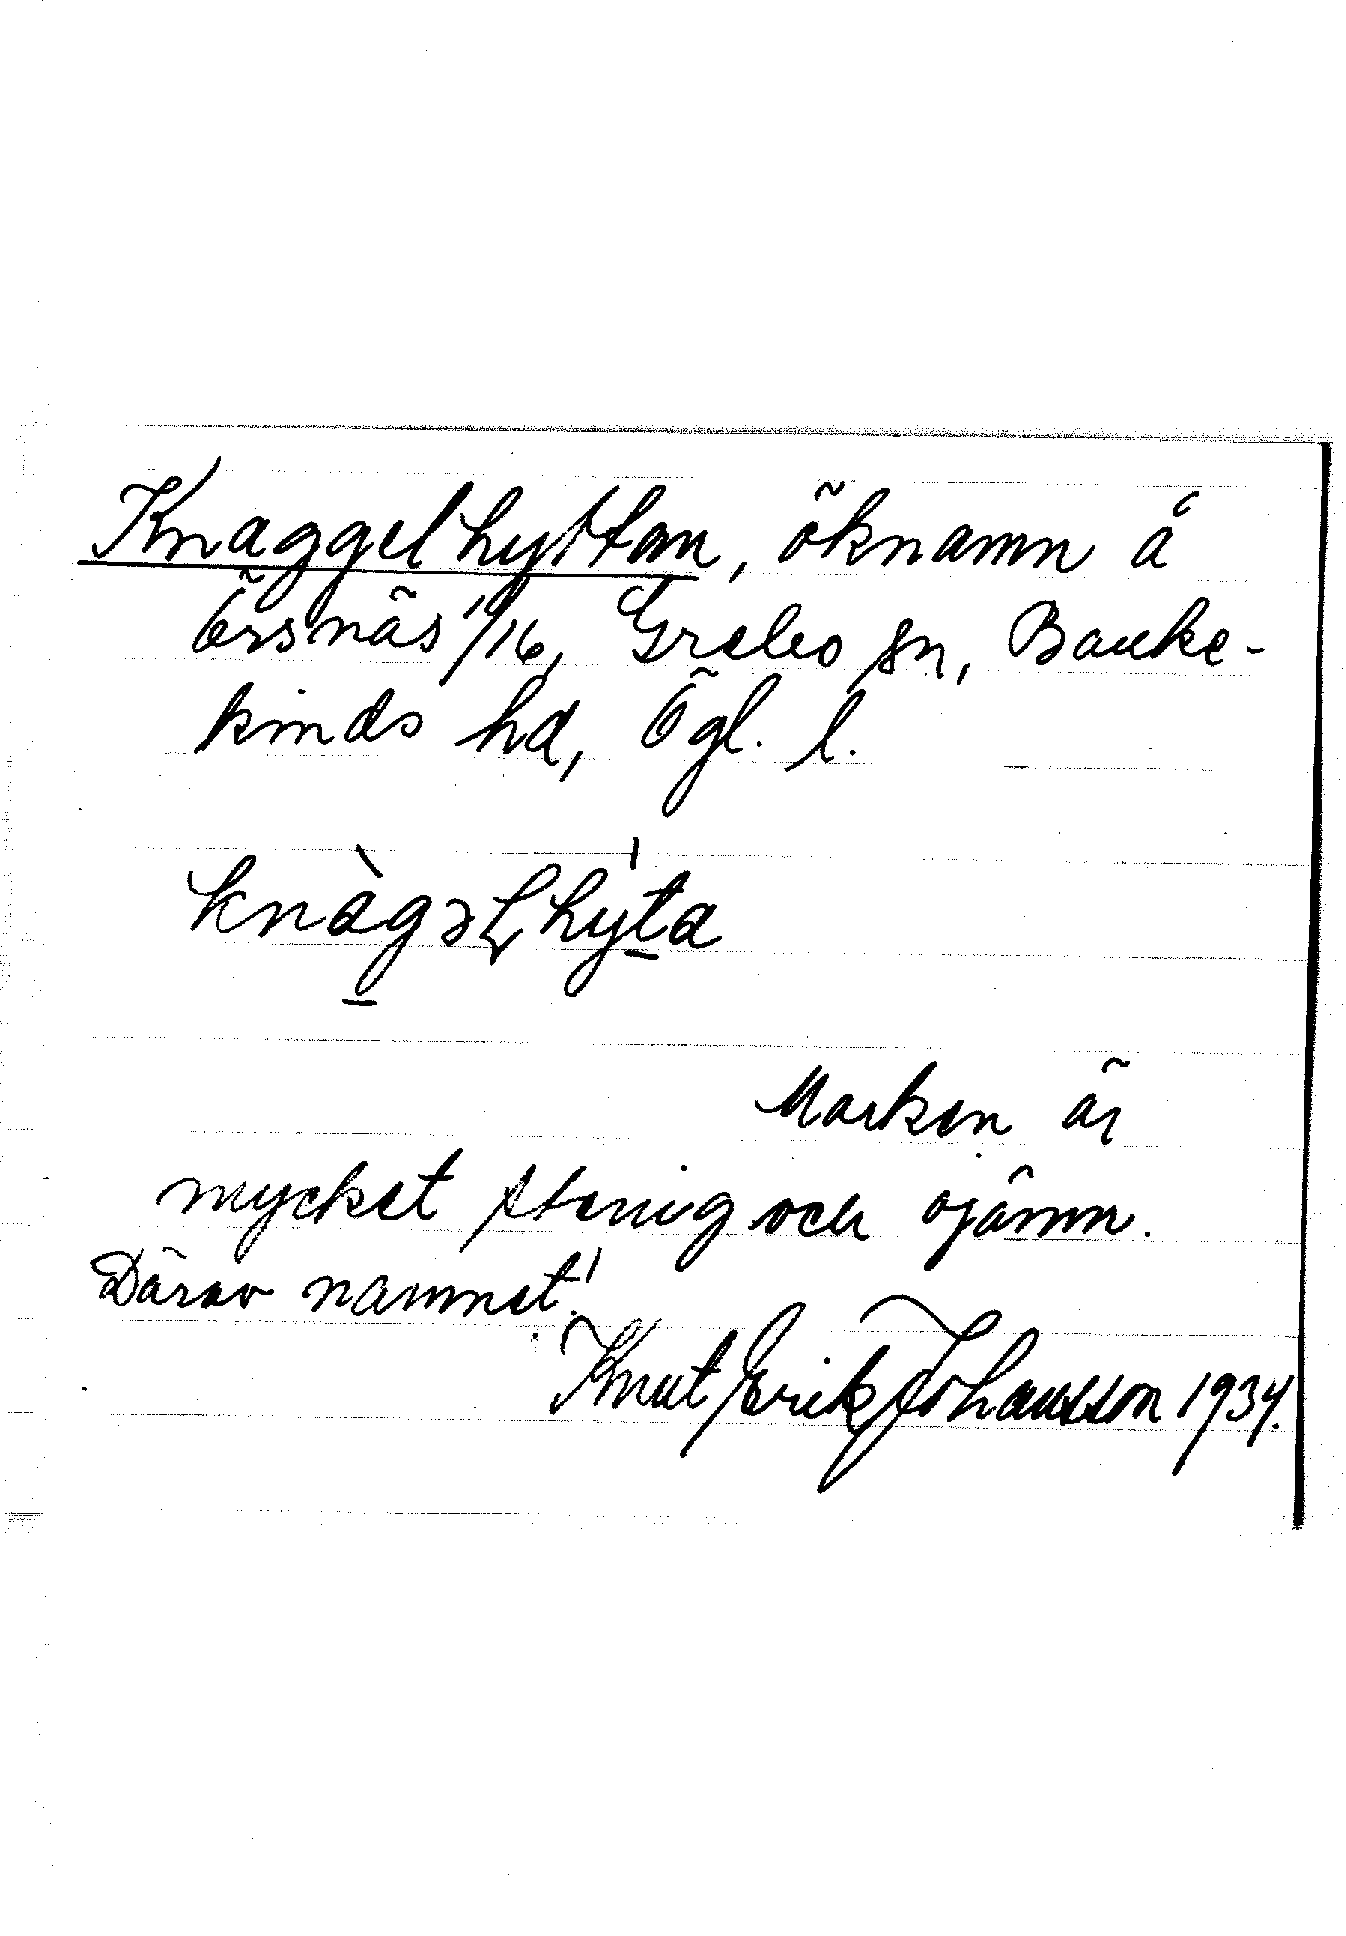 Knaggelhyttan, öknamn å
Örsnäs 1/16, Grebo sn, Banke-
kinds hd, Ögl. l.
knàgəɭhy̍ta
Marken är
mycket stenig och ojämn.
Därav namnet!
Knut Erik Johansson 1934.